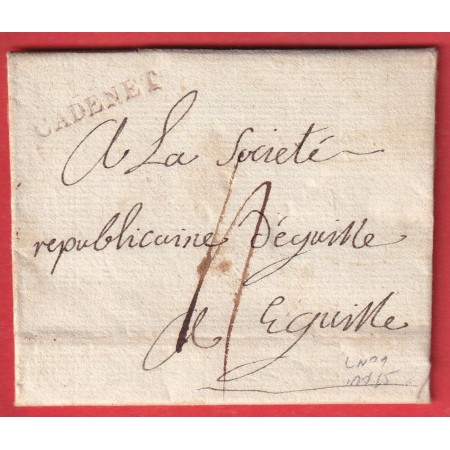 CADENET
A La Societé
republicaine D'éguille
A Eguille